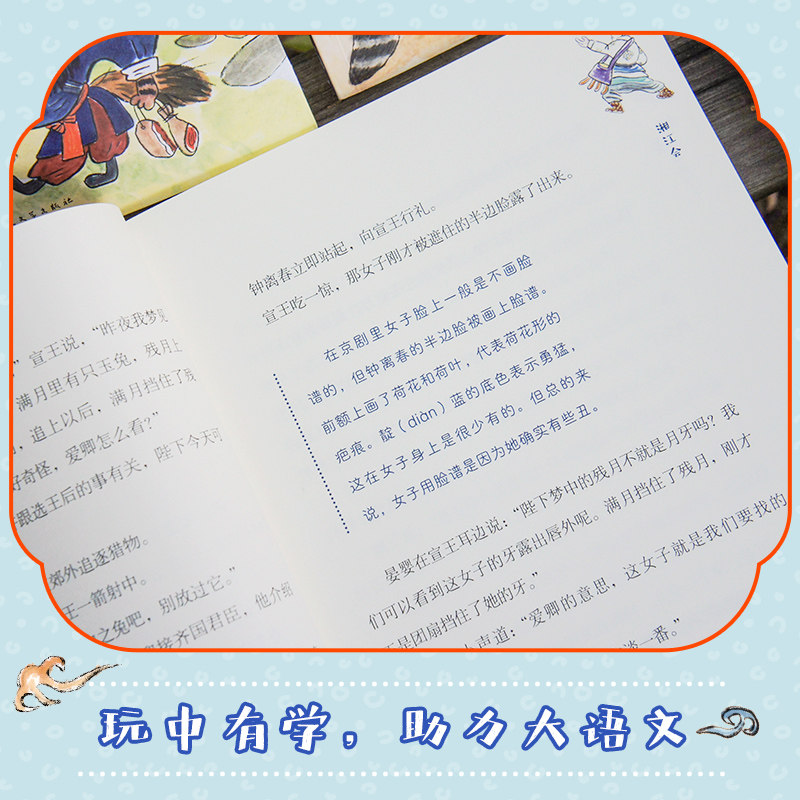 湘江会
钟离春立即站起，向宣王行礼。
宣王吃一惊，那女子刚才被遮住的半边脸露了出来。
在京剧里女子脸上一般是不画脸
谱的，但钟离春的半边脸被画上脸谱。
前额上画了荷花和荷叶，代表荷花形的
疤痕。靛（diàn）蓝的底色表示勇猛，
这在女子身上是很少有的。但总的来
说，女子用脸谱是因为她确实有些丑。
晏婴在宣王耳边说：“陛下梦中的残月不就是月牙吗？我
们可以看到这女子的牙露出唇外呢。满月挡住了残月，刚才
是团扇挡住了她的牙。”
声道：“爱卿的意思，这女子就是我们要找的
一番。”
”宣王说，“昨夜我梦见
满月里有只玉兔，残月上
，追上以后，满月挡住了残
奇怪，爱卿怎么看？”
跟选王后的事有关，陛下今天可
郊外追逐猎物。
王一箭射中。
之兔吧，别放过它。”
接齐国君臣，他介绍
玩中有学，助力大语文